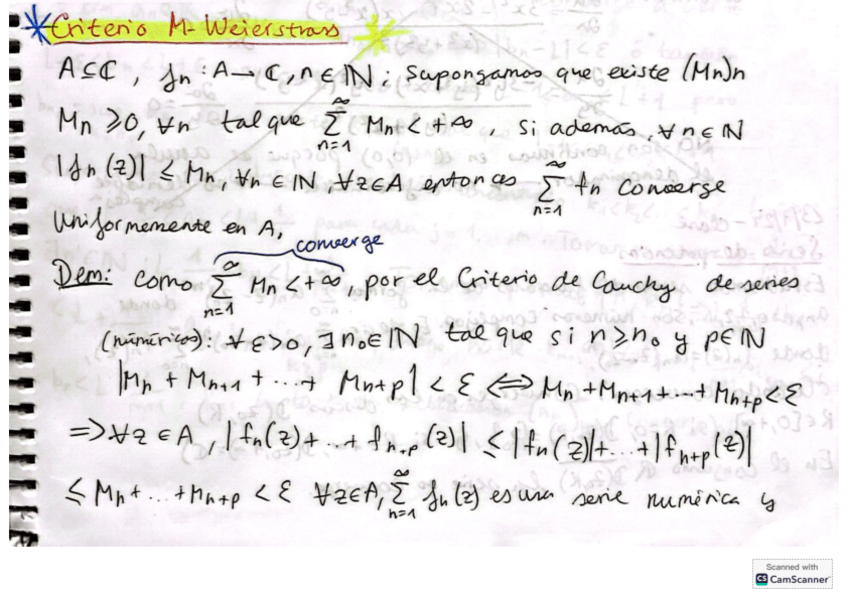 Criterio M-Weierstrass
A⊆ℂ, fn: A→ℂ, n∈ℕ; Supongamos que existe (Mn)n
Mn ≥0, ∀n tal que ∑_{n=1}^{∞} Mn < +∞, si además, ∀n∈ℕ
|fn(z)| ≤ Mn, ∀n∈ℕ, ∀z∈A entonces ∑_{n=1}^{∞} fn converge
Uniformemente en A,
converge
Dem: como ∑_{n=1}^{∞} Mn < +∞, por el Criterio de Cauchy de series
(númericos): ∀ε>0, ∃n₀∈ℕ tal que si n≥n₀ y p∈ℕ
|Mn + Mn+1 + ... + Mn+p| < ε ⟺ Mn + Mn+1 + ... + Mn+p < ε
⟹ ∀z∈A, |fn(z) + ... + fn+p(z)| ≤ |fn(z)| + ... + |fn+p(z)|
≤ Mn + ... + Mn+p < ε ∀z∈A, ∑_{n=1}^{∞} fn(z) es una serie numérica y
Scanned with
CS CamScanner